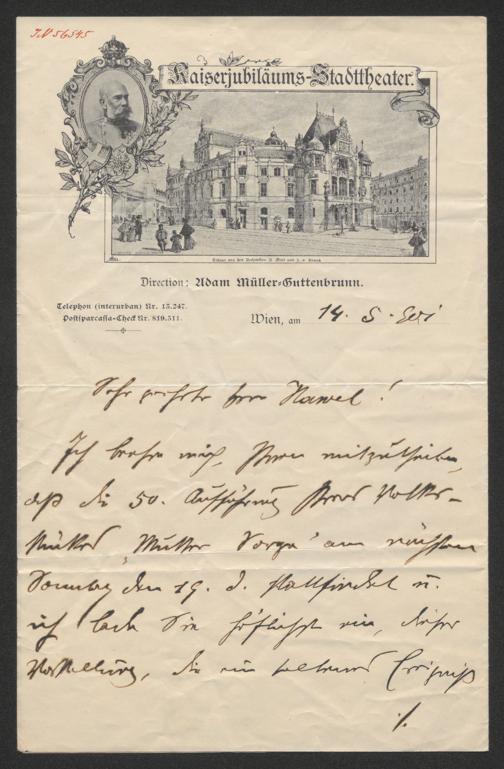 I.N 56545
Kaiserjubiläums-Stadttheater.
Direction: Adam Müller-Guttenbrunn.
Telephon (interurban) Nr. 15.247.
Postsparcassa-Check Nr. 859.511.
Wien, am 14. 5.
Sehr geehrter Herr Hawel!
Ich beehre mich, Ihnen mitzutheilen,
daß die 50. Aufführung Ihres Volks-
stückes „Mutter Sorge" am nächsten
Sonntag den 19. d. stattfindet u.
ich lade Sie höflichst ein, dieser
Vorstellung, die ein seltenes Ereigniß
./.